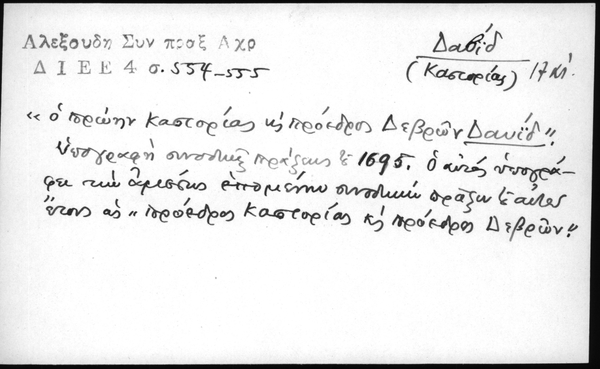 Αλεξουδη Συν πραξ Αχρ
ΔΙΕΕ 4 σ. 554-555
Δαβίδ
(Καστορίας) 17 αἰ.
«ὁ πρώην Καστορίας κ̀ πρόεδρος Δεβρῶν Δαυΐδ».
Ὑπογραφὴ συνοδικῆς πράξεως τοῦ 1695. Ὁ αὐτὸς ὑπογρά-
φει τὴν ἀμέσως ἑπομένην συνοδικὴν πρᾶξιν τοῦ αὐτοῦ
ἔτους ὡς «πρόεδρος Καστορίας κ̀ πρόεδρος Δεβρῶν».